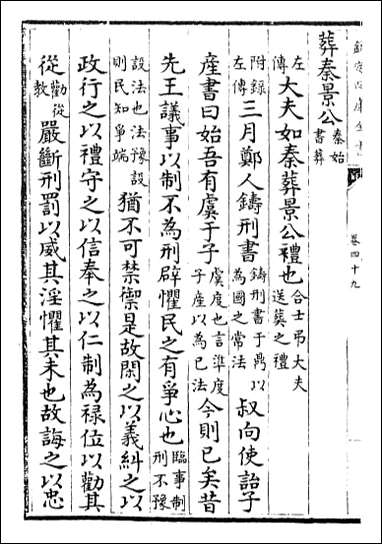 卷四十九
葬秦景公秦始書葬
左傳大夫如秦葬景公禮也合士弔大夫送葬之禮
附録左傳三月鄭人鑄刑書鑄刑書于鼎以為國之常法叔向使詒子
産書曰始吾有虞于子虞度也言準度子産以為已法今則已矣昔
先王議事以制不為刑辟懼民之有爭心也臨事制刑不豫
設法也法豫設則民知爭端猶不可禁禦是故閑之以義糾之以
政行之以禮守之以信奉之以仁制為禄位以勸其
從勸從教嚴斷刑罰以威其淫懼其未也故誨之以忠